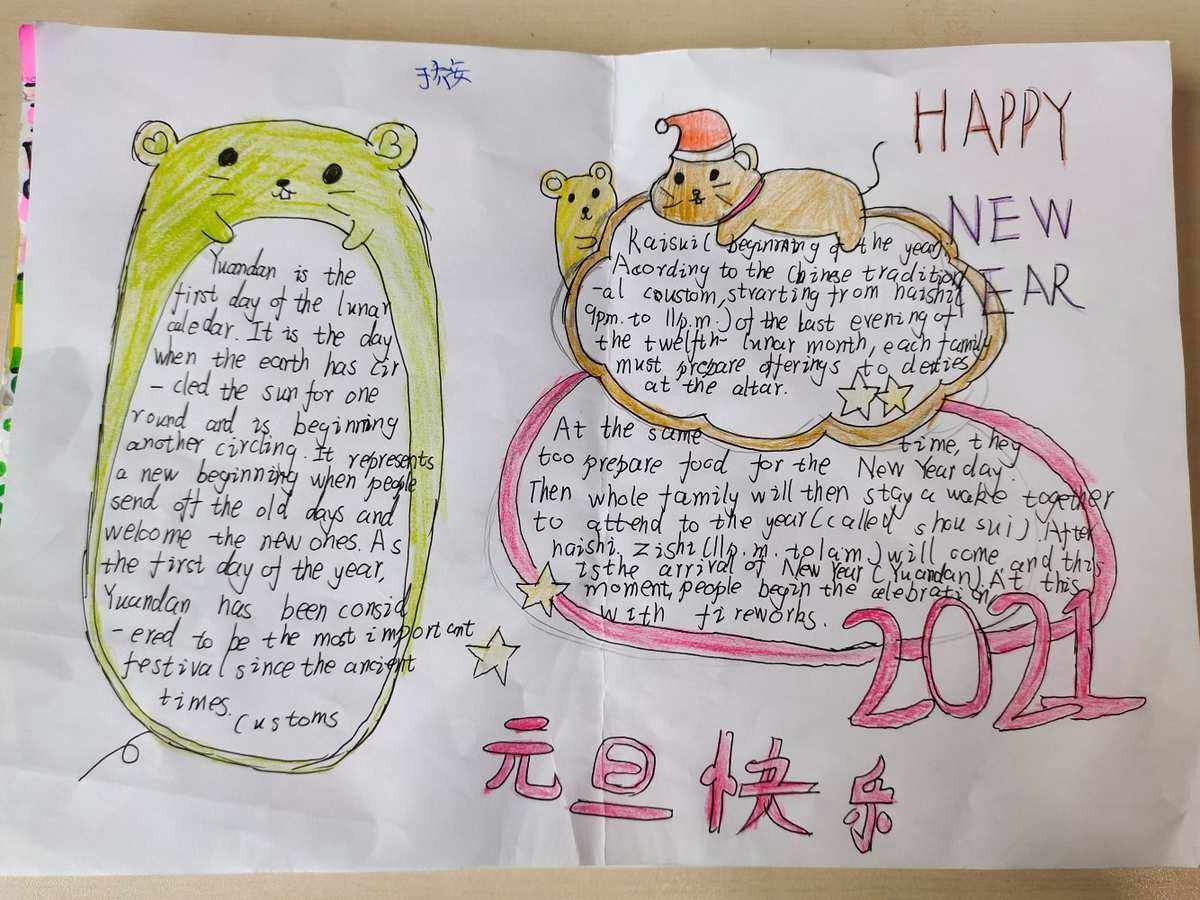 Yuandan is the
first day of the lunar
caledar. It is the day
when the earth has cir
-cled the sun for one
round and is beginning
another circling. It represents
a new beginning when people
send off the old days and
welcome the new ones. As
the first day of the year,
Yuandan has been consid
-ered to be the most important
festival since the ancient
times.
Customs
HAPPY
NEW
EAR
Kaisui( beginning of the year)
Acording to the Chinese tradition
-al coustom, strarting from haishi(
9pm. to 11p.m.) of the last evening of
the twelfth- lunar month, each family
must prepare offerings to deities
at the altar.
At the same time, they
too prepare food for the New Year day.
Then whole family will then stay a wake together
to attend to the year (called shousui). After
haishi, zishi (11p.m. to 1am.) will come, and this
is the arrival of New Year (Yuandan). At this
moment, people begin the celebration
with fireworks.
2021
元旦快乐